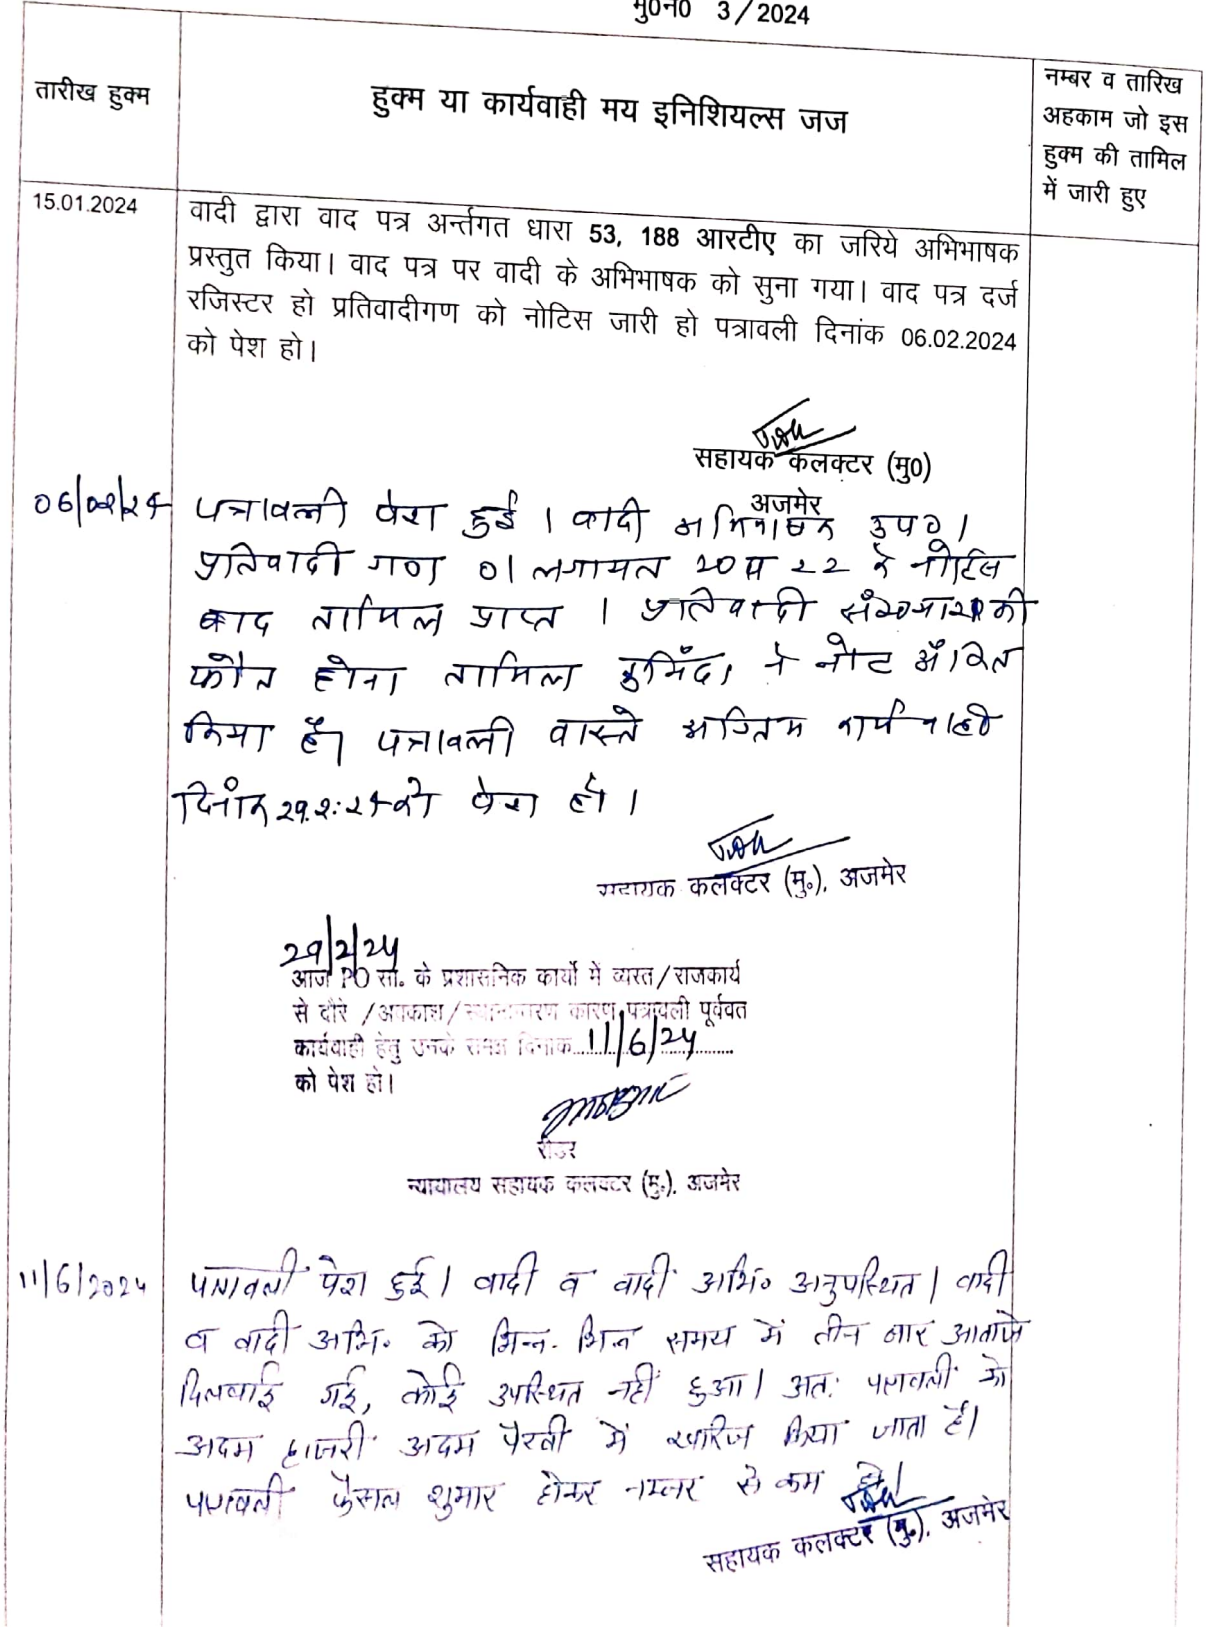 मु0न0 3/2024
तारीख हुक्म
हुक्म या कार्यवाही मय इनिशियल्स जज
नम्बर व तारिख
अहकाम जो इस
हुक्म की तामिल
में जारी हुए
15.01.2024
वादी द्वारा वाद पत्र अर्न्तगत धारा 53, 188 आरटीए का जरिये अभिभाषक
प्रस्तुत किया। वाद पत्र पर वादी के अभिभाषक को सुना गया। वाद पत्र दर्ज
रजिस्टर हो प्रतिवादीगण को नोटिस जारी हो पत्रावली दिनांक 06.02.2024
को पेश हो।
सहायक कलक्टर (मु0)
अजमेर
06/02/24 पत्रावली पेश हुई । वादी अभिभाषक उप० ।
प्रतिवादी गण 01 लगायत 20 व 22 के नोटिस
बाद तामिल प्राप्त । प्रतिवादी संख्या 21 की
फौत होना तामिल कुनिंदा ने नोट अंकित
किया है। पत्रावली वास्ते अग्रिम कार्यवाही
दिनांक 29.2.24 को पेश हो ।
सहायक कलक्टर (मु०), अजमेर
29/2/24
आज PO सा. के प्रशासनिक कार्यो में व्यस्त/राजकार्य
से दौरे /अवकाश/स्थानान्तरण कारण पत्रावली पूर्ववत
कार्यवाही हेतु उनके समक्ष दिनांक 11/6/24
को पेश हो।
रीडर
न्यायालय सहायक कलक्टर (मु.). अजमेर
11/6/2024 पत्रावली पेश हुई। वादी व वादी अभि० अनुपस्थित। वादी
व वादी अभि. को भिन्न-भिन्न समय में तीन बार आवाजे
दिलवाई गई, कोई उपस्थित नहीं हुआ। अत: पत्रावली को
अदम हाजरी अदम पैरवी में खारिज किया जाता है।
पत्रावली फैसल शुमार होकर नम्बर से कम हो।
सहायक कलक्टर (मु०), अजमेर